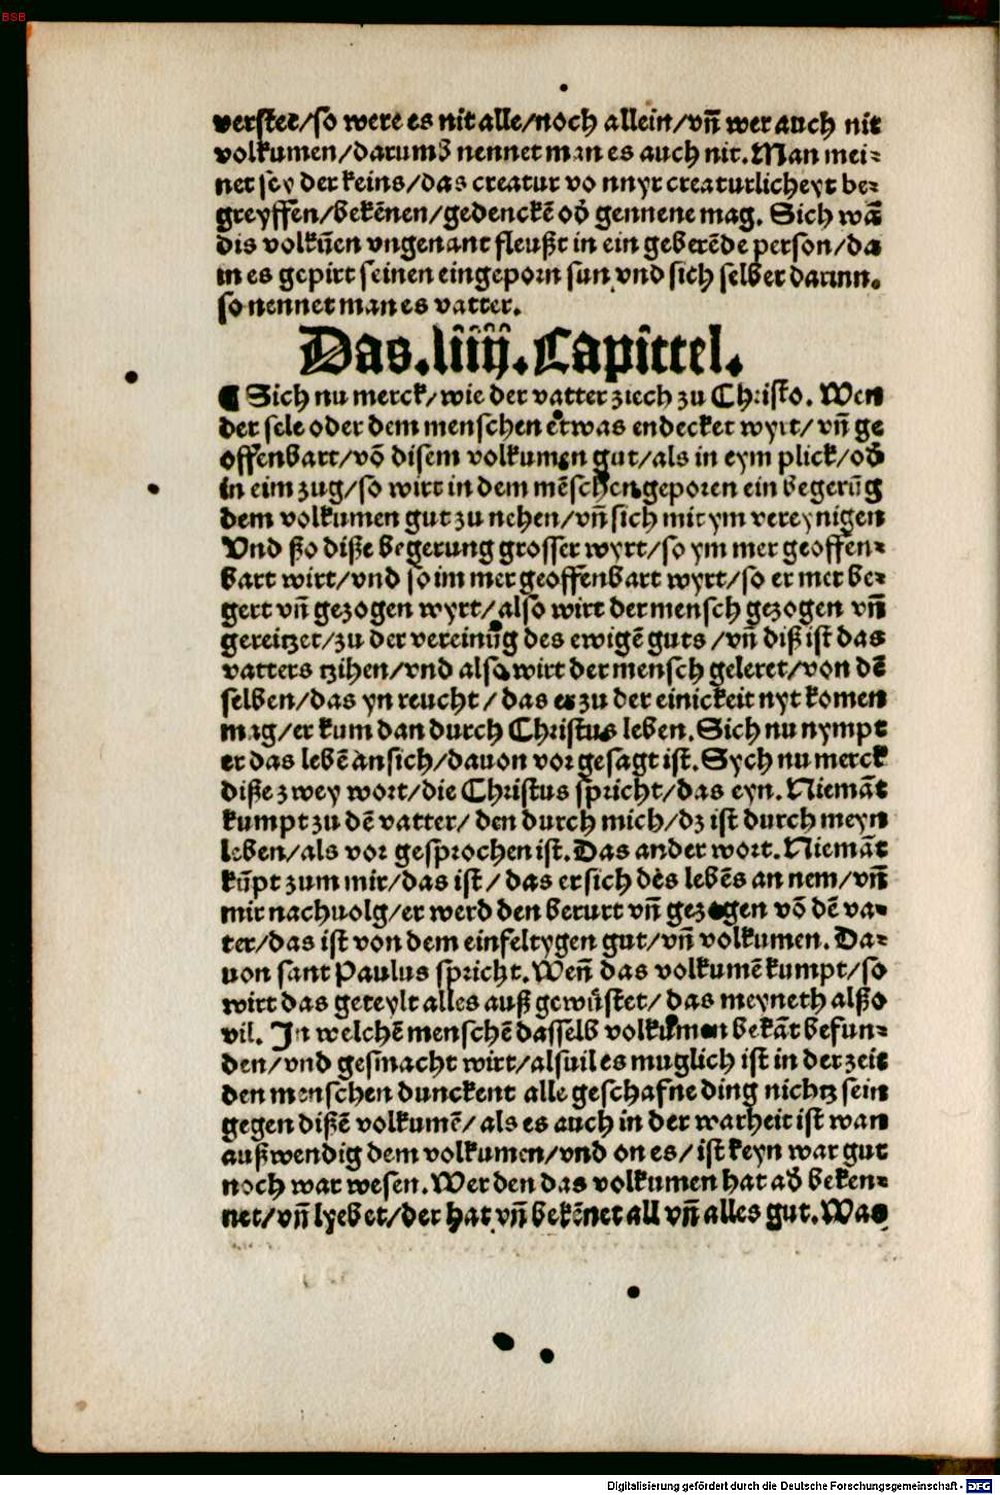 BSB
verstet/so were es nit alle/noch allein/vn̄ wer auch nit
volkumen/darumb nennet man es auch nit. Man mei⸗
net sey der keins/das creatur vo nnyr creaturlicheyt be⸗
greyffen/bekēnen/gedenckē od̄ gennene mag. Sich wā
dis volkūen vngenant fleußt in ein geberēde person/da
in es gepirt seinen eingeporn sun vnd sich selber darinn.
so nennet man es vatter.
Das.liiij.Capittel.
¶ Sich nu merck/wie der vatter ziech zu Christo. Wen
der sele oder dem menschen etwas endecket wyrt/vn̄ ge
offenbart/vō disem volkumen gut/als in eym plick/od̄
in eim zug/so wirt in dem mēschen geporen ein begerūg
dem volkumen gut zu nehen/vn̄ sich mit ym vereynigen
Vnd ßo diße begerung grosser wyrt/so ym mer geoffen⸗
bart wirt/vnd so im mer geoffenbart wyrt/so er mer be⸗
gert vn̄ gezogen wyrt/also wirt der mensch gezogen vn̄
gereitzet/zu der vereinūg des ewigē guts/vn̄ diß ist das
vatters tzihen/vnd also wirt der mensch geleret/von dē
selben/das yn reucht/das er zu der einickeit nyt komen
mag/er kum dan durch Christus leben. Sich nu nympt
er das lebē an sich/dauon vor gesagt ist. Sych nu merck
diße zwey wort/die Christus spricht/das eyn. Niemāt
kumpt zu dē vatter/den durch mich/dz ist durch meyn
leben/als vor gesprochen ist. Das ander wort. Niemāt
kūpt zum mir/das ist/das er sich des lebēs an nem/vn̄
mir nachuolg/er werd den berurt vn̄ gezogen vō dē va⸗
ter/das ist von dem einfeltygen gut/vn̄ volkumen. Da⸗
uon sant Paulus spricht. Wen̄ das volkumē kumpt/so
wirt das geteylt alles auß gewüstet/das meyneth alßo
vil. In welchē menschē dasselb volkumen bekāt befun⸗
den/vnd gesmacht wirt/alsuil es muglich ist in der zeit
den menschen dunckent alle geschafne ding nichtz sein
gegen dißē volkumē/als es auch in der warheit ist wan
außwendig dem volkumen/vnd on es/ist keyn war gut
noch war wesen. Wer den das volkumen hat ad̄ beken⸗
net/vn̄ lyebet/der hat vn̄ bekēnet all vn̄ alles gut. Was
Digitalisierung gefördert durch die Deutsche Forschungsgemeinschaft - DFG